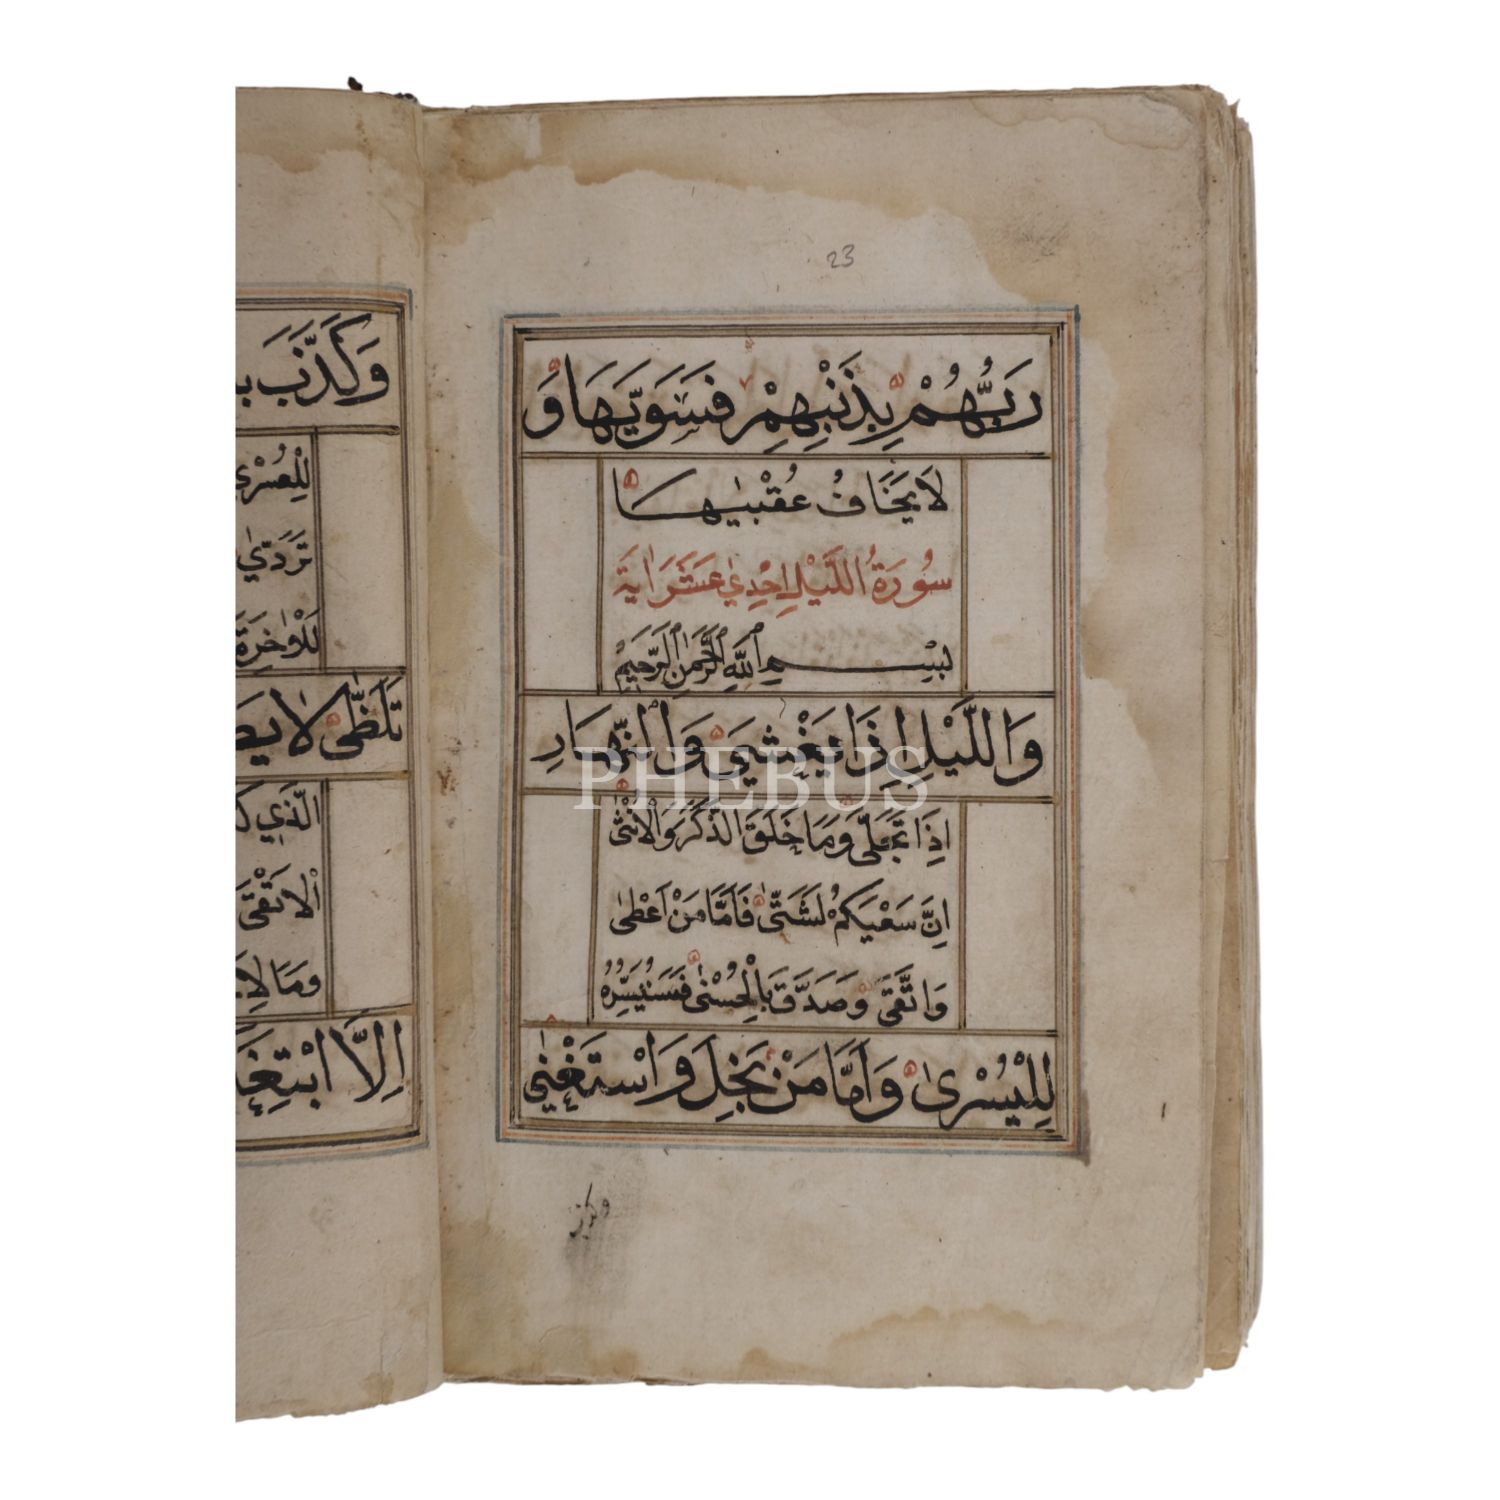 23
رَبُّهُمْ بِذَنْبِهِمْ فَسَوّٰيهَا وَ
لَا يَخَافُ عُقْبٰيهَا
سُورَةُ اللَّيْلِ اِحْدٰي عَشَرَ اٰيَة
بِسْمِ اللّٰهِ الرَّحْمٰنِ الرَّحِيمِ
وَاللَّيْلِ اِذَا يَغْشٰيَ وَالنَّهَارِ
اِذَا تَجَلّٰي وَمَا خَلَقَ الذَّكَرَ وَالْاُنْثٰى
اِنَّ سَعْيَكُمْ لَشَتّٰى فَاَمَّا مَنْ اَعْطٰى
وَاتَّقٰىَ وَصَدَّقَ بِالْحُسْنٰى فَسَنُيَسِّرُهُ
لِلْيُسْرٰى وَاَمَّا مَنْ بَخِلَ وَاسْتَغْنٰي
وكذب
وَكَذَّبَ بِ
لِلْعُسْرٰى
تَرَدّٰي
لَلْاٰخِرَةَ
تَلَظّٰى لَا يَصْ
الَّذِي كَ
الْاَتْقٰى
وَمَا لِاَ
اِلَّا ابْتِغَ
PHEBUS